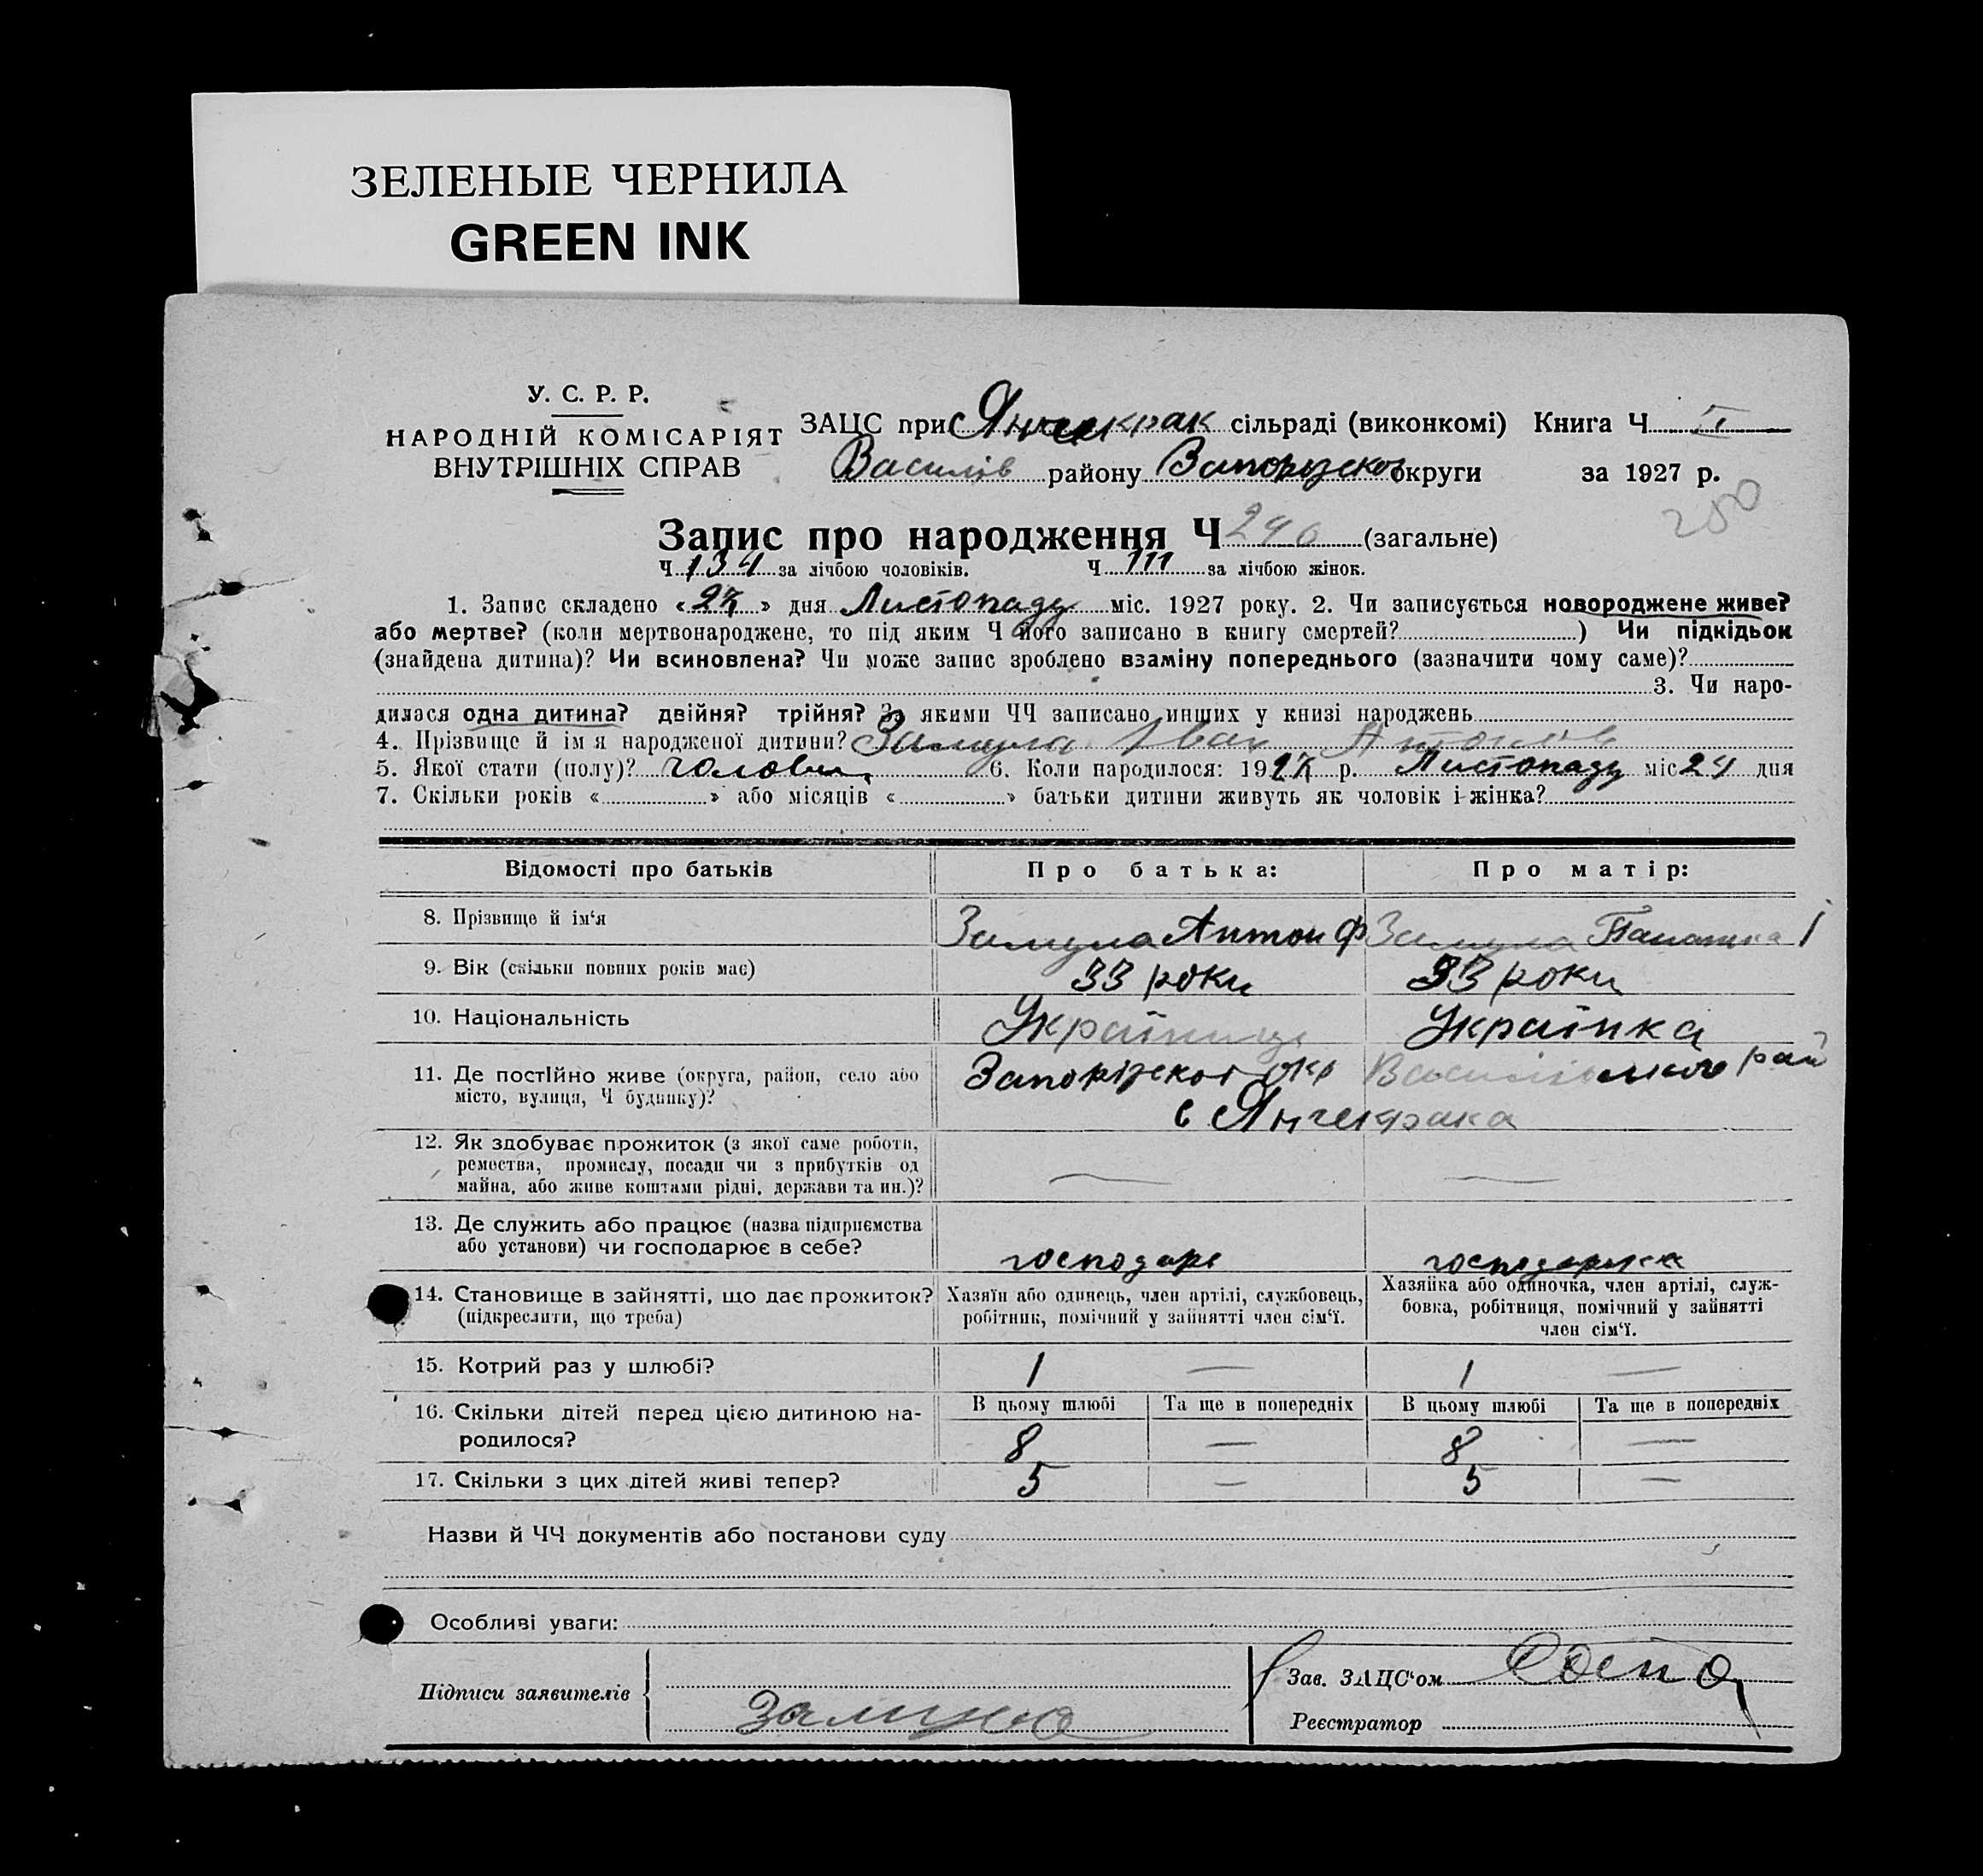 ЗЕЛЕНЫЕ ЧЕРНИЛА
GREEN INK
У. С. Р. Р.
НАРОДНІЙ КОМІСАРІЯТ
ВНУТРІШНІХ СПРАВ
ЗАЦС при с Янчекрак сільраді (виконкомі) Книга Ч II
Василів району Запорізскої округи за 1927 р.
250
Запис про народження Ч 240 (загальне)
Ч 134 за лічбою чоловіків. Ч 111 за лічбою жінок.
1. Запис складено «27» дня Листопаду міс. 1927 року. 2. Чи записується новороджене живе?
або мертве? (коли мертвонароджене, то під яким Ч його записано в книгу смертей?) Чи підкідьок
(знайдена дитина)? Чи всиновлена? Чи може запис зроблено взаміну попереднього (зазначити чому саме)?
3. Чи наро-
дилася одна дитина? двійня? трійня? За якими ЧЧ записано инших у книзі народжень
4. Прізвище й ім'я народженої дитини? Замула Іван Антонів
5. Якої стати (полу)? чоловіч 6. Коли народилося: 1927 р. Листопаду міс 24 дня
7. Скільки років « » або місяців « » батьки дитини живуть як чоловік і жінка?
Відомості про батьків Про батька: Про матір:
8. Прізвище й ім'я Замула Антон Ф Замула І
9. Вік (скільки повних років має) 33 роки 33 роки
10. Національність Українець Українка
11. Де постійно живе (округа, район, село або Запорізскої окр рай
місто, вулиця, Ч будинку)? с Янчекрака
12. Як здобуває прожиток (з якої саме роботи,
ремества, промислу, посади чи з прибутків од — —
майна, або живе коштами рідні, держави та ин.)?
13. Де служить або працює (назва підприємства
або установи) чи господарює в себе? господарь господарька
14. Становище в зайнятті, що дає прожиток? Хазяїн або одинець, член артілі, службовець, Хазяйка або одиночка, член артілі, служ-
(підкреслити, що треба) робітник, помічний у зайнятті член сім'ї. бовка, робітниця, помічний у зайнятті
член сім'ї.
15. Котрий раз у шлюбі? 1 — 1 —
16. Скільки дітей перед цією дитиною на- В цьому шлюбі Та ще в попередніх В цьому шлюбі Та ще в попередніх
родилося? 8 — 8 —
17. Скільки з цих дітей живі тепер? 5 — 5 —
Назви й ЧЧ документів або постанови суду
Особливі уваги:
Підписи заявителів Замула
Зав. ЗАЦС'ом
Реєстратор